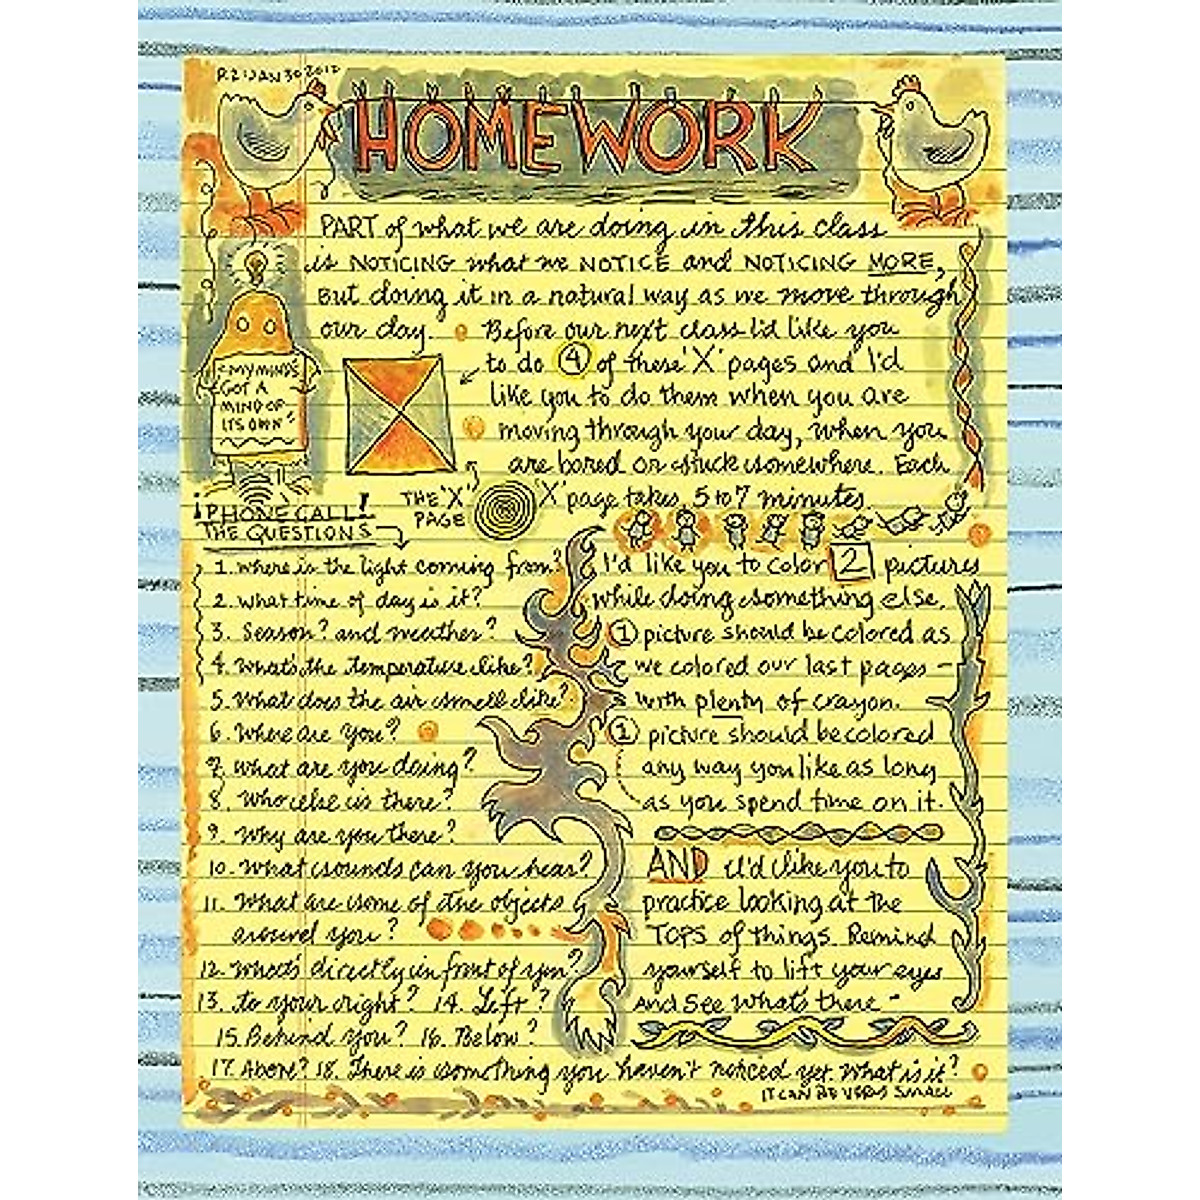 R2:JAN 30 2012
HOMEWORK
PART of what we are doing in this class
is NOTICING what we NOTICE and NOTICING MORE,
But doing it in a natural way as we move through
our day. Before our next class I'd like you
to do 4 of these 'X' pages and I'd
like you to do them when you are
moving through your day, when you
are bored or stuck somewhere. Each
'X' page takes 5 to 7 minutes.
"MY MIND'S
GOT A
MIND OF
ITS OWN"
THE 'X'
PAGE
¡PHONE CALL!
THE QUESTIONS
1. where is the light coming from?
2. what time of day is it?
3. Season? and weather?
4. What's the temperature like?
5. What does the air smell like?
6. Where are you?
7. what are you doing?
8. Who else is there?
9. Why are you there?
10. What sounds can you hear?
11. What are some of the objects
around you?
12. What's directly in front of you?
13. to your right? 14. Left?
15. Behind you? 16. Below?
17. Above? 18. There is something you haven't noticed yet. What is it?
IT CAN BE VERY SMALL
I'd like you to color 2 pictures
while doing something else.
1 picture should be colored as
we colored our last pages -
with plenty of crayon.
1 picture should be colored
any way you like as long
as you spend time on it.
AND I'd like you to
practice looking at the
TOPS of things. Remind
yourself to lift your eyes
AND SEE what's there -